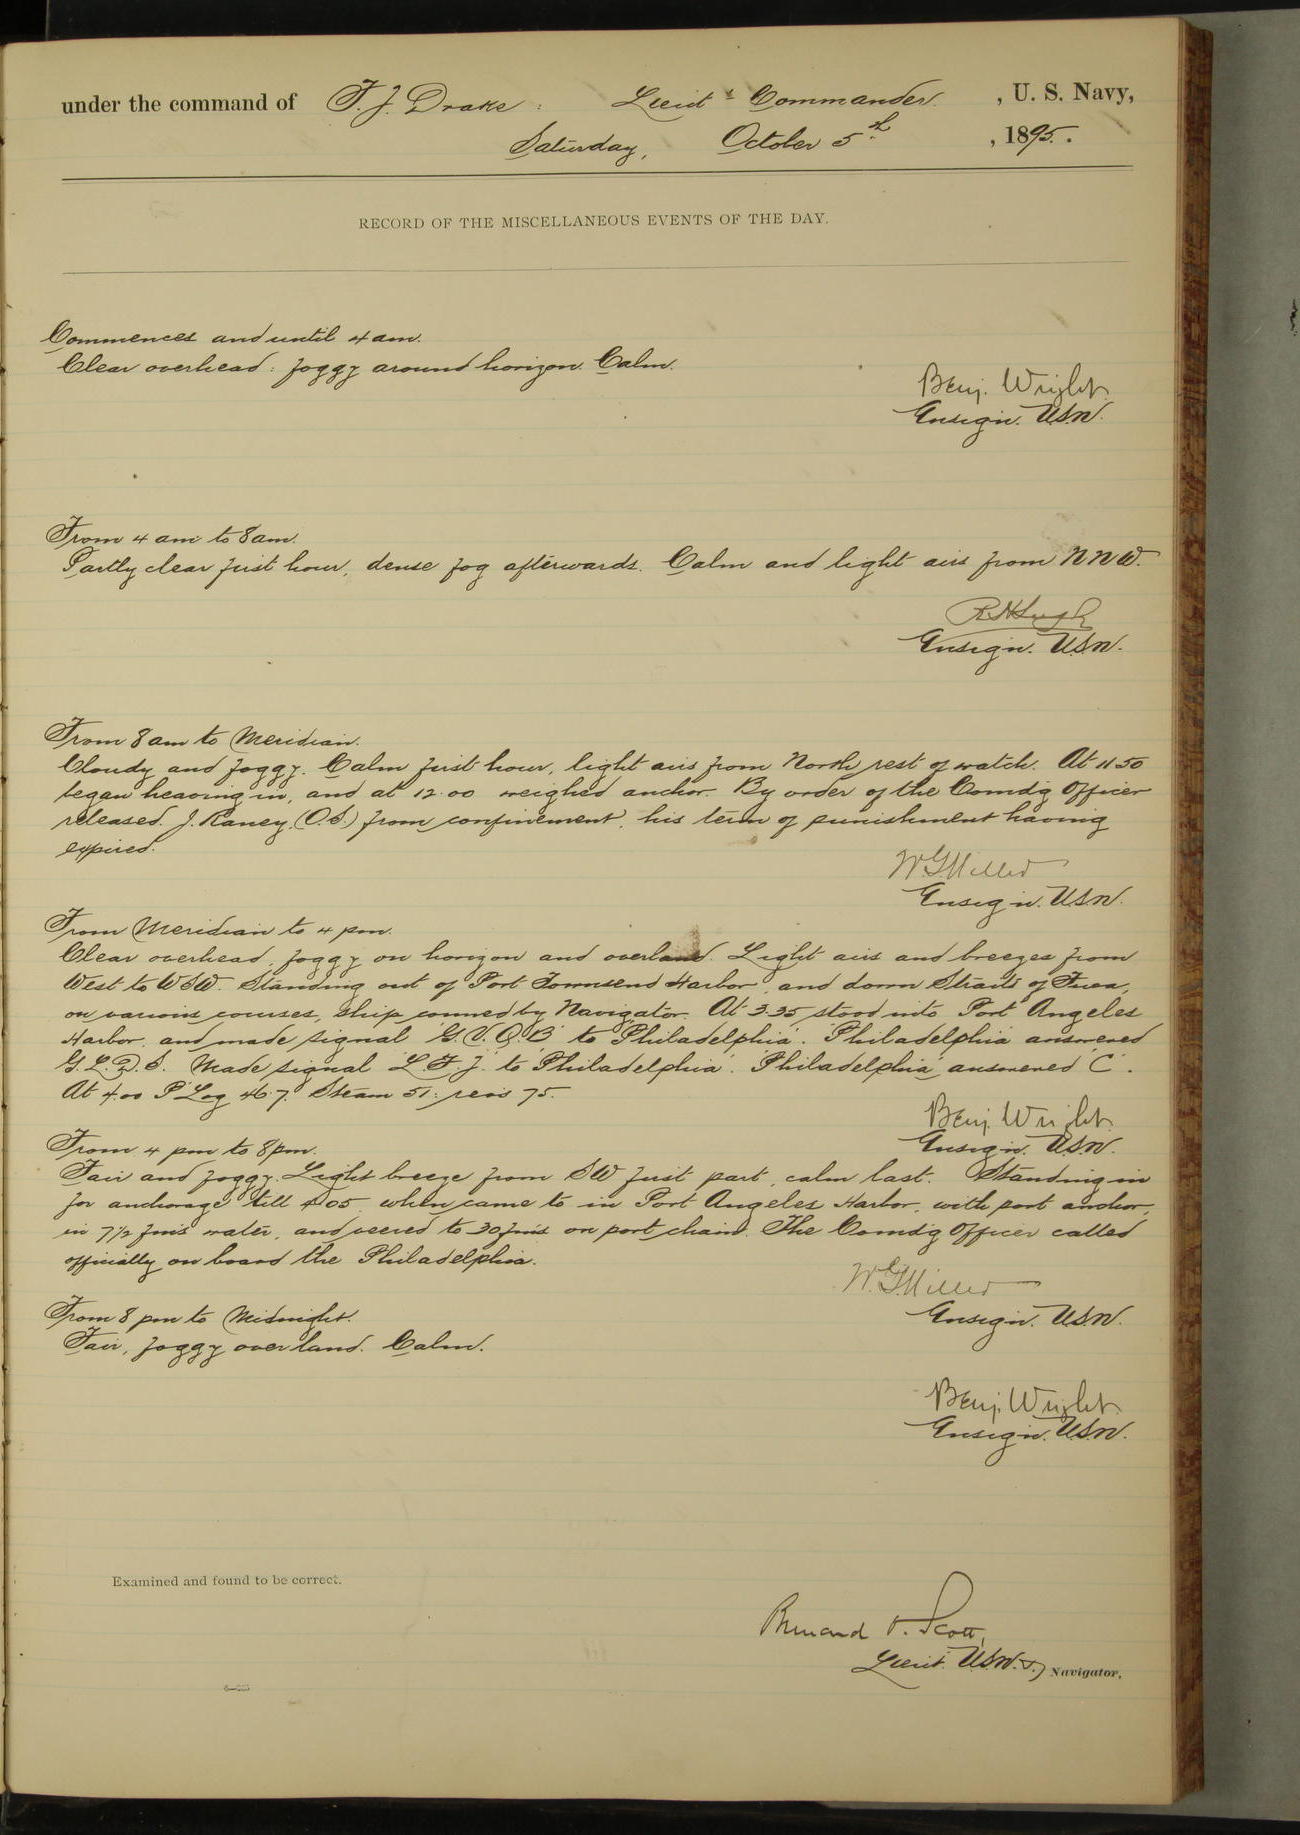 under the command of F. J. Drake : Lieut - Commander , U. S. Navy,
Saturday, October 5th , 1895.
RECORD OF THE MISCELLANEOUS EVENTS OF THE DAY.
Commences and until 4 am.
Clear overhead : foggy around horizon. Calm.
Benj. Wright
Ensign. U.S.N.
From 4 am to 8 am.
Partly clear first hour, dense fog afterwards. Calm and light airs from N N W.
Ensign. U.S.N.
From 8 am to Meridian.
Cloudy and foggy. Calm first hour, light airs from North rest of watch. At 11.50
began heaving in, and at 12.00 weighed anchor. By order of the Comdg Officer
released J. Raney (O.S.) from confinement, his term of punishment having
expired.
W.G. Miller
Ensign. U.S.N.
From Meridian to 4 pm.
Clear overhead, foggy on horizon and overland. Light airs and breezes from
West to WSW. Standing out of Port Townsend Harbor, and down Straits of Fuca,
on various courses, ship conned by Navigator. At 3.35 stood into Port Angeles
Harbor, and made signal "G.V.Q.B" to "Philadelphia". "Philadelphia" answered
G.L.D.S. Made signal "L.F.J." to "Philadelphia". "Philadelphia" answered "C".
At 4.00 P Log 46.7. Steam 51: revs 75.
Benj. Wright.
Ensign. U.S.N.
From 4 pm to 8 pm.
Fair and foggy. Light breeze from SW first part, calm last. Standing in
for anchorage till 4.05 when came to in Port Angeles Harbor, with port anchor,
in 7½ fms water, and veered to 30 fms on port chain. The Comdg Officer called
officially on board the Philadelphia.
W.G. Miller
Ensign. U.S.N.
From 8 pm to Midnight.
Fair, foggy over land. Calm.
Benj. Wright.
Ensign. U.S.N.
Examined and found to be correct.
Bernard O. Scott,
Lieut. U.S.N. Navigator.